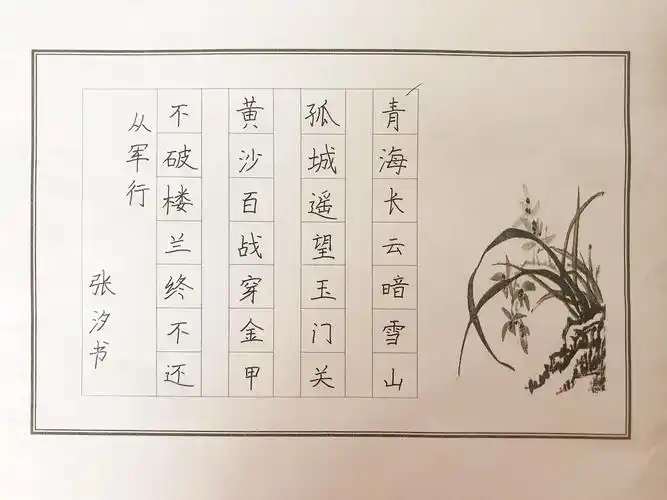 青海长云暗雪山
孤城遥望玉门关
黄沙百战穿金甲
不破楼兰终不还
从军行
张汐书